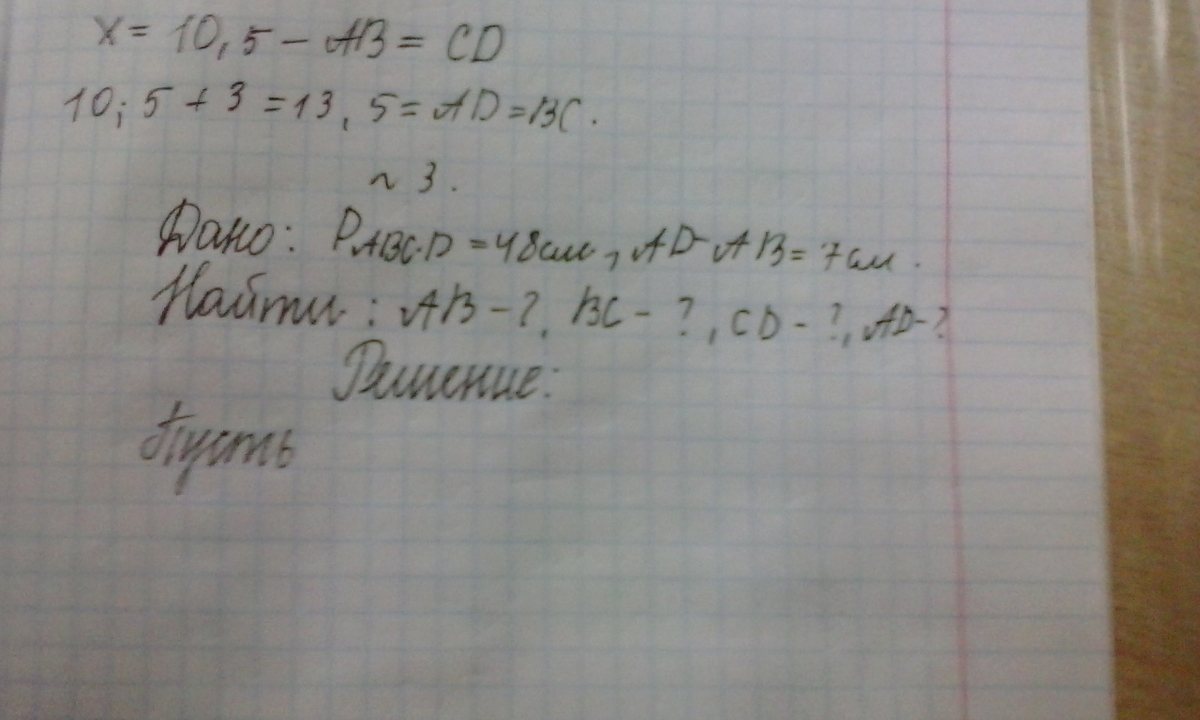 x = 10,5 – AB = CD
10; 5 + 3 = 13, 5 = AD = BC.
~ 3.
Дано: PABCD = 48см, AD - AB = 7см.
Найти: AB - ?, BC - ?, CD - ?, AD - ?
Решение:
Пусть